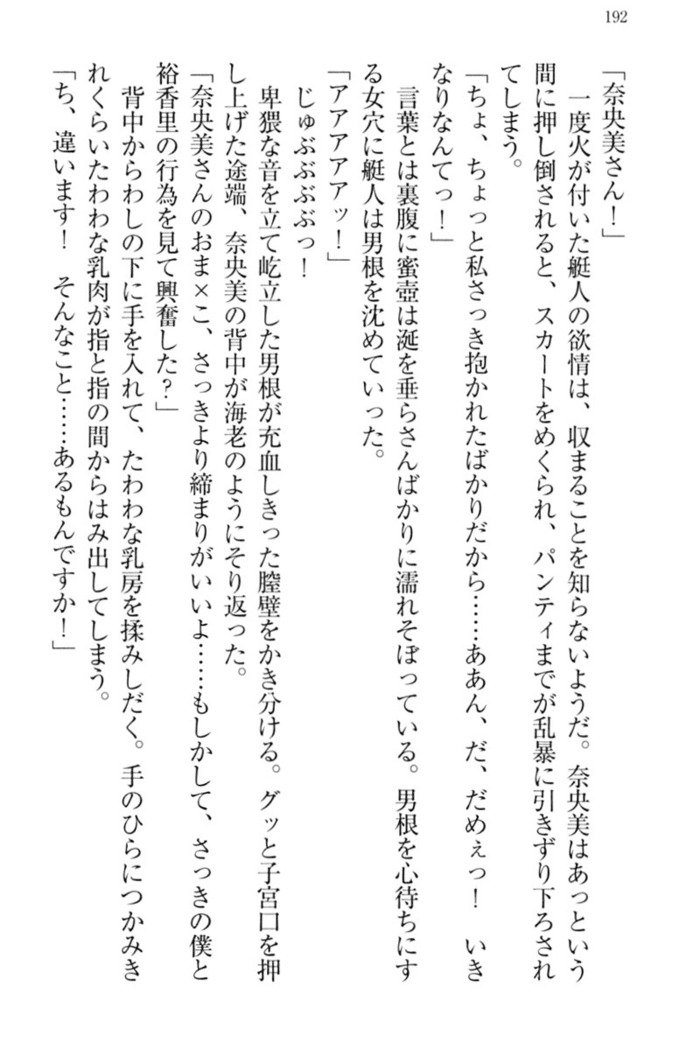 192
「奈央美さん！」
　一度火が付いた艇人の欲情は、収まることを知らないようだ。奈央美はあっという
間に押し倒されると、スカートをめくられ、パンティまでが乱暴に引きずり下ろされ
てしまう。
「ちょ、ちょっと私さっき抱かれたばかりだから……ああん、だ、だめぇっ！　いき
なりなんてっ！」
　言葉とは裏腹に蜜壺は涎を垂らさんばかりに濡れそぼっている。男根を心待ちにす
る女穴に艇人は男根を沈めていった。
「アアアアアッ！」
　じゅぶぶぶぶっ！
　卑猥な音を立て屹立した男根が充血しきった膣壁をかき分ける。グッと子宮口を押
し上げた途端、奈央美の背中が海老のようにそり返った。
「奈央美さんのおま×こ、さっきより締まりがいいよ……もしかして、さっきの僕と
裕香里の行為を見て興奮した？」
　背中からわしの下に手を入れて、たわわな乳房を揉みしだく。手のひらにつかみき
れくらいたわわな乳肉が指と指の間からはみ出してしまう。
「ち、違います！　そんなこと……あるもんですか！」